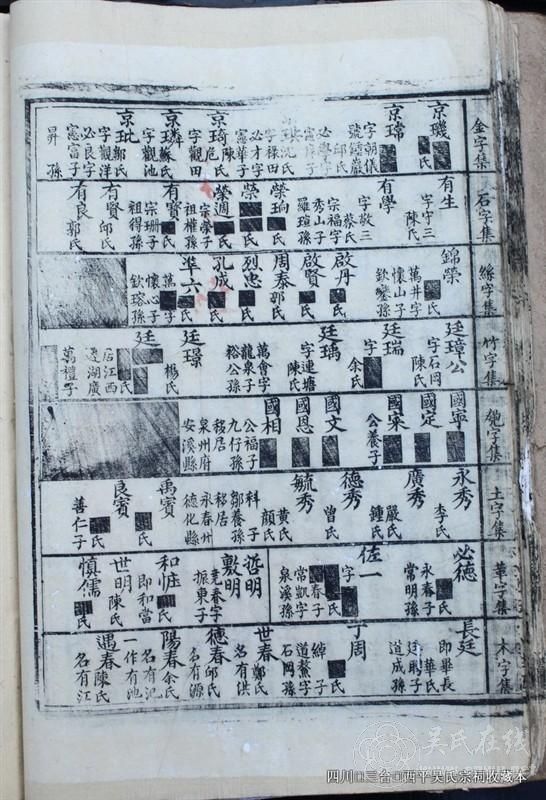 金字集
京璣
氏
京瑺
字朝儀
號鍾巖
邱氏
沈氏
字祿田
必才字
憲華子
陳氏
京琦
危氏
字觀田
京璘
蘇氏
字觀池
京玭
鄭氏
字觀洋
必良字
憲富子
昇孫
石字集
有生
字守三
陳氏
有學
字敬三
蔡氏
宗福字
秀山子
羅瑄孫
榮珦
氏
榮
氏
榮週
氏
宗榮子
祖權孫
有寶
氏
宗珊子
祖得孫
有賢
邱氏
有良
郭氏
絲字集
錦榮
氏
萬井字
懷山子
欽鑾孫
啟丹
氏
啟賢
氏
周泰
郭氏
烈忠
氏
孔成
氏
準六
氏
萬字
懷心子
欽瑢孫
竹字集
廷璋公
字石岡
陳氏
廷瑞
字
余氏
廷瑀
字連塘
陳氏
萬會字
龍泉子
裕公孫
廷璟
楊氏
廷
氏
居江西
遷湖廣
萬禮子
匏字集
國寧
氏
國定
氏
國寀
氏
公養子
國文
氏
國恩
氏
國相
氏
公福子
九仔孫
移居
泉州府
安溪縣
土字集
永秀
李氏
廣秀
嚴氏
鍾氏
德秀
曾氏
毓秀
黃氏
顏氏
科子
鄒養孫
移居
永春州
德化縣
禹賓
氏
良賓
氏
善仁子
華字集
必德
氏
永春子
常明孫
佐一
字
氏
春子
常凱字
泉溪孫
哲明
敷明
堯春字
振東子
和性
氏
即和當
世明
陳氏
慎儒
鄭氏
木字集
長廷
即畢長
華氏
廷颺子
道成孫
于周
氏
綽子
道鰲字
石岡孫
世春
鄭氏
名有洪
德春
邱氏
名有源
陽春
余氏
名有汜
一作有池
遇春
陳氏
名有江
吳氏在线
四川□三台□西平吴氏宗祠收藏本